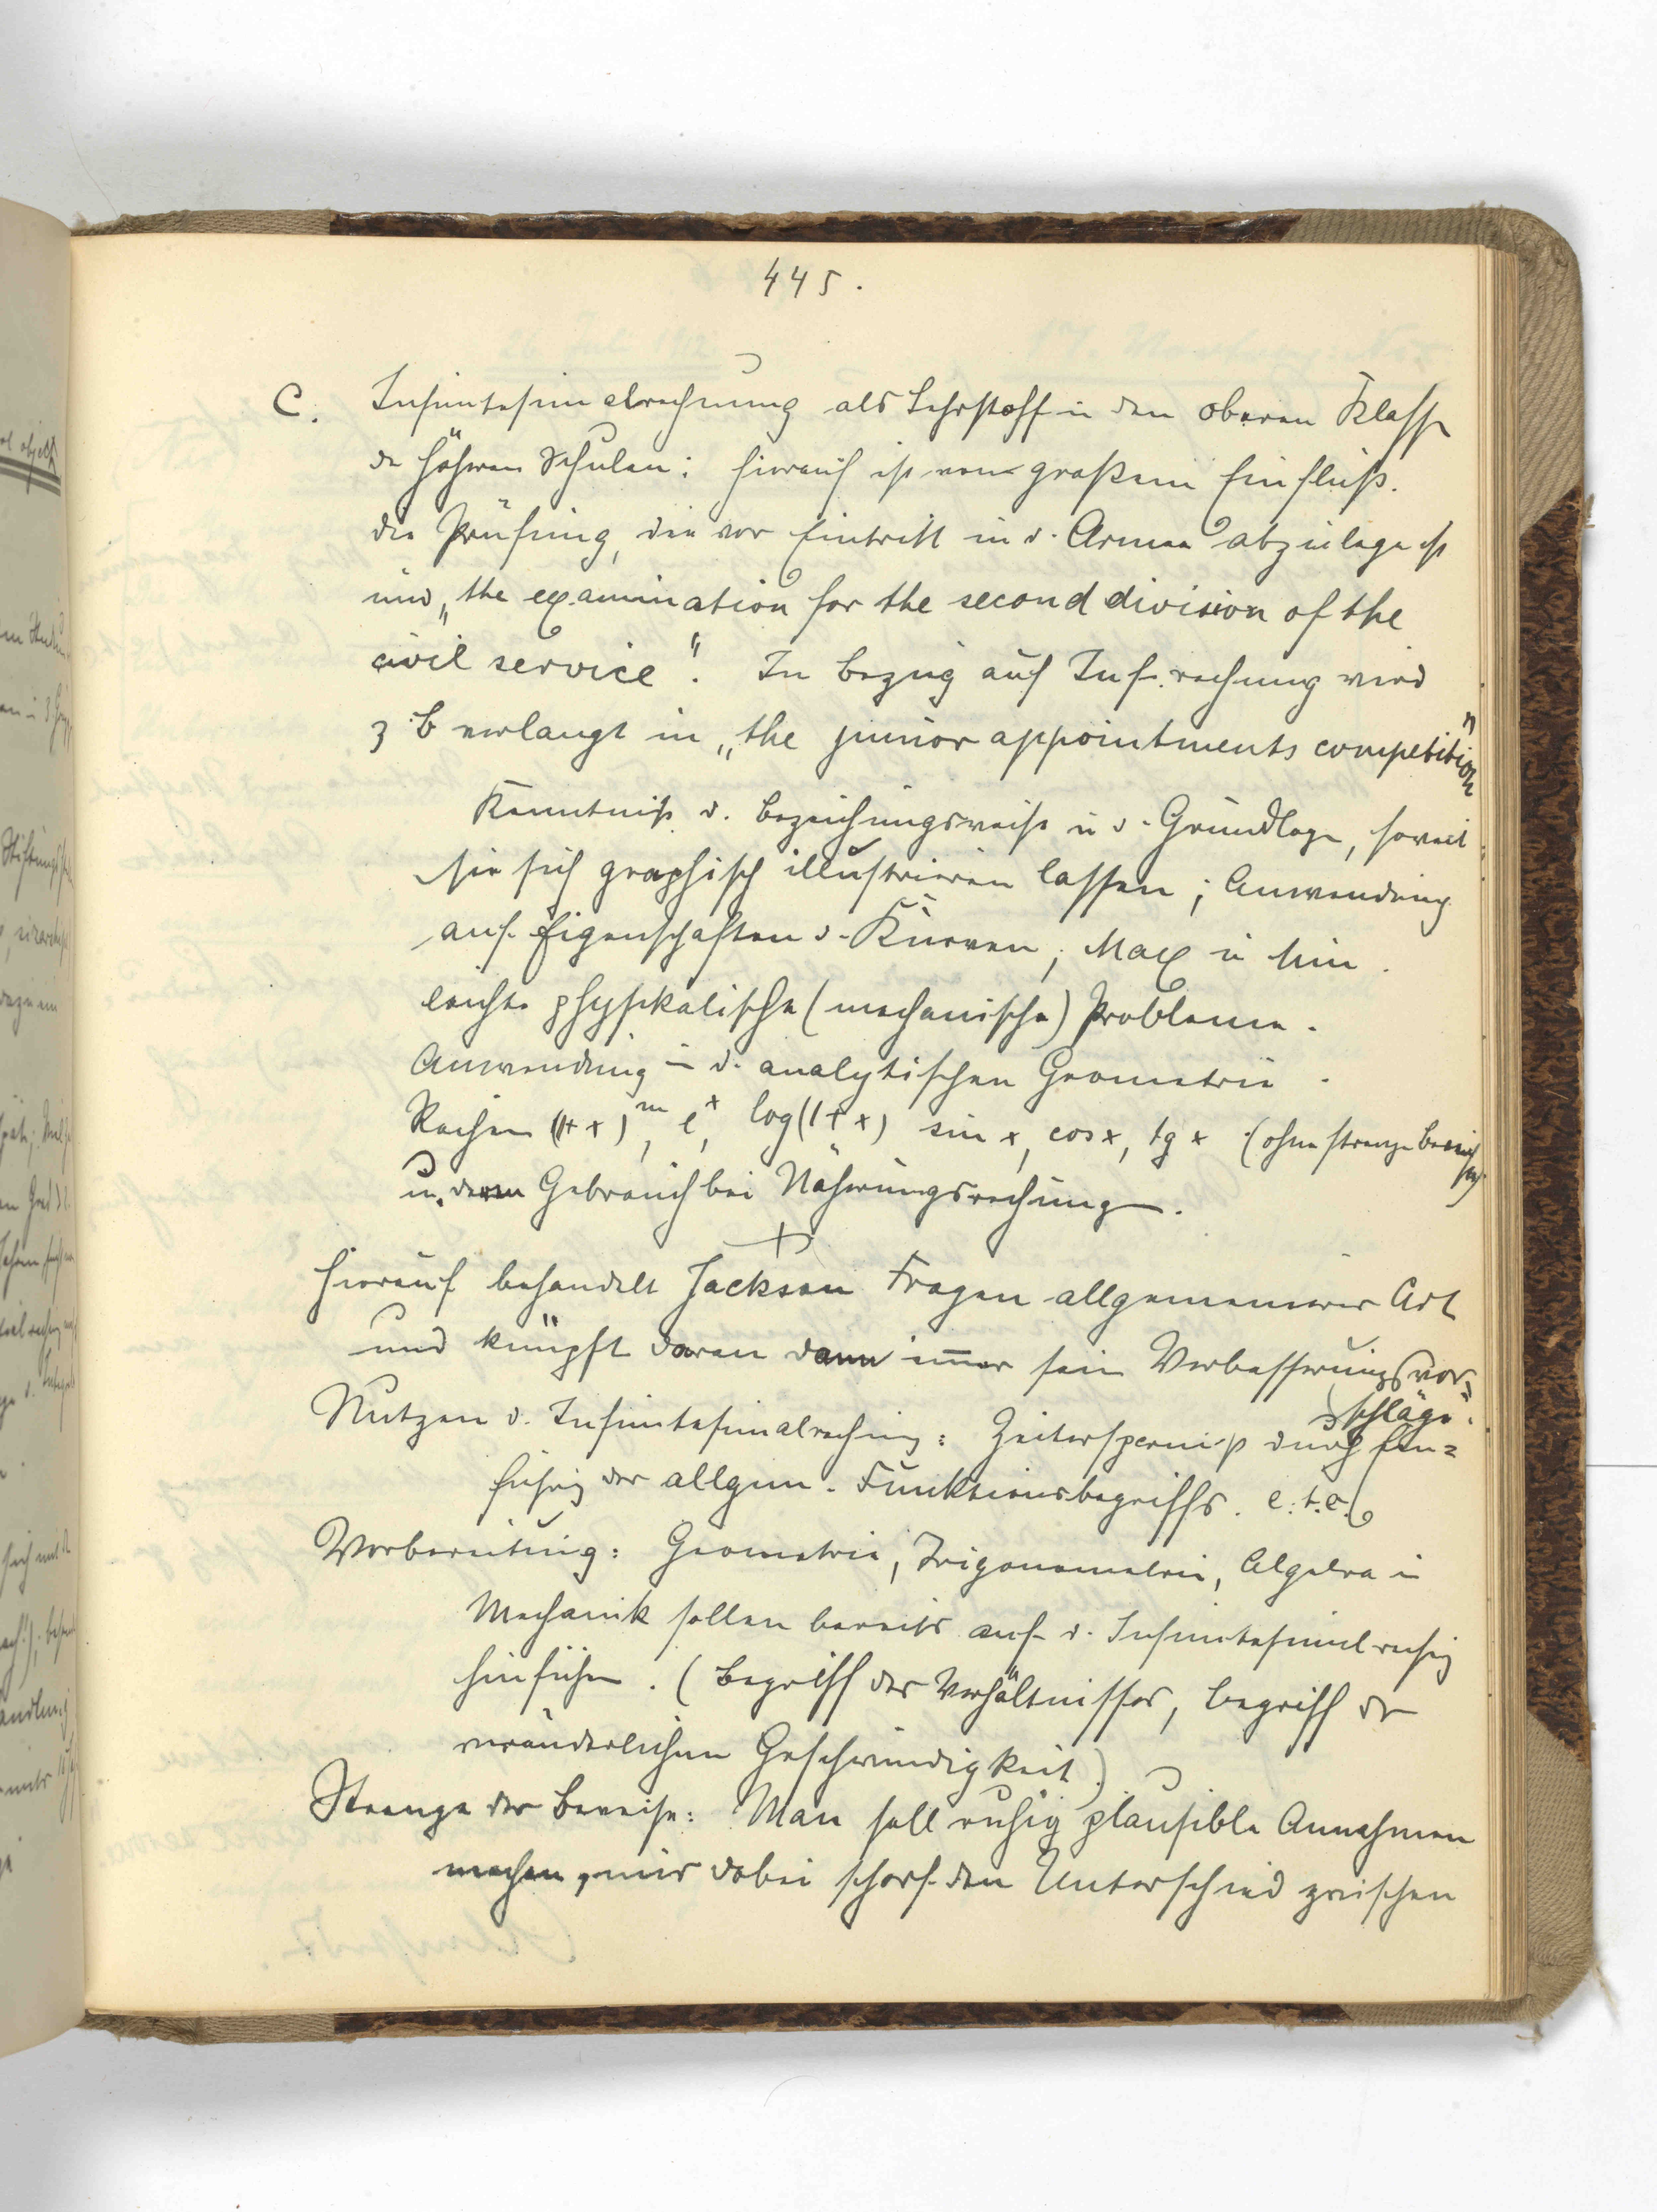 445.
C. Infinitesimalrechnung als Lehrstoff in den oberen Klassen
der höheren Schulen: hierauf ist von großem Einfluß.
die Prüfung, die vor Eintritt in d. Armee abzulegen ist
und „the examination for the second division of the
civil service". In Bezug auf Inf. rechnung wird
z B verlangt in „the junior appointments competition"
Kenntniß d. Bezeichungsweise u d. Grundlage, soweit
sie sich graphisch illustrieren lassen; Anwendung
auf Eigenschaften d. Kurven, Max u Min.
leichte physikalische (mechanische) Probleme.
Anwendung in d. analytischen Geometrie.
Reihen (1+x)^m, e^x, log(1+x) sin x, cos x, tg x (ohne strenge Beweise)
u. deren Gebrauch bei Näherungsrechnung.
Hierauf behandelt Jackson Fragen allgemeinerer Art
und knüpft daran dann immer sein Verbesserungsvor=
schläge.
Nutzen d. Infinitesimalrechung: Zeitersparniß durch Ein=
führg des allgem. Funktionsbegriffs. e.t.c.
Vorbereitung: Geometrie, Trigonometrie, Algebra u
Mechanik sollen bereits auf d. Infinitesimalrechng
hinführen. (Begriff des Verhältnisses, Begriff der
veränderlichen Geschwindigkeit)
Strenge der Beweise: Man soll ruhig plausible Annahmen
machen, nur dabei scharf den Unterschied zwischen